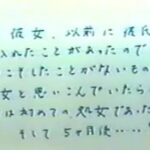 彼女、以前に彼氏
入れたことがあったので
こそしたことがないもの
女と思いこんでいたら
は初めての処女であった
そして5ヶ月後・・・・・